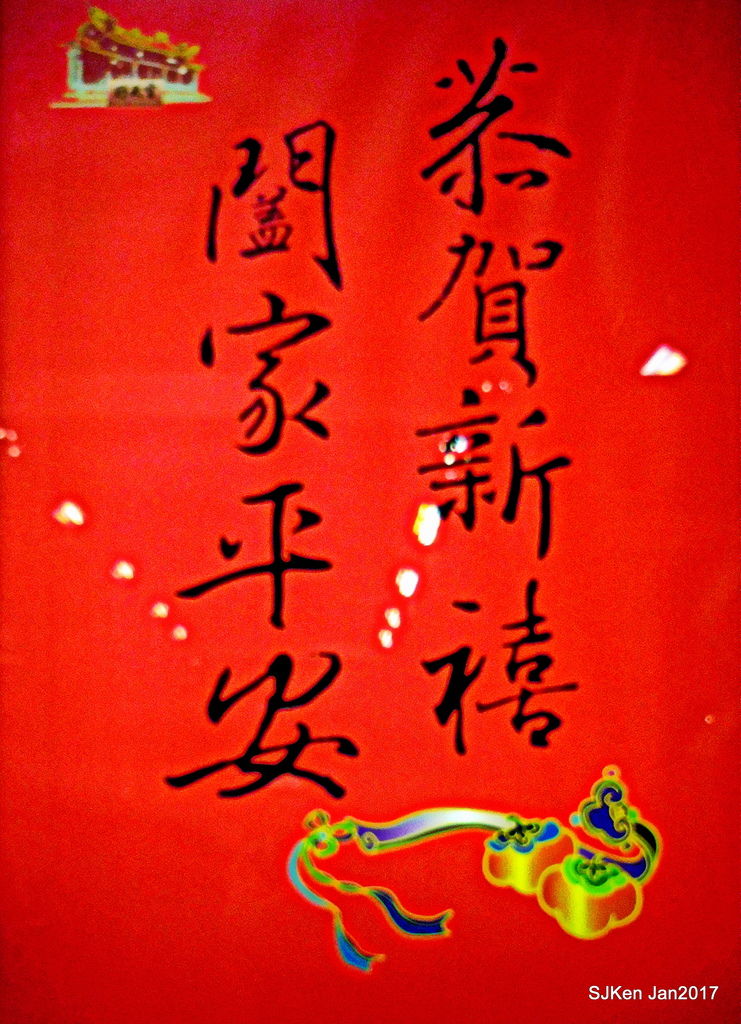 恭賀新禧
闔家平安
SJKen Jan2017